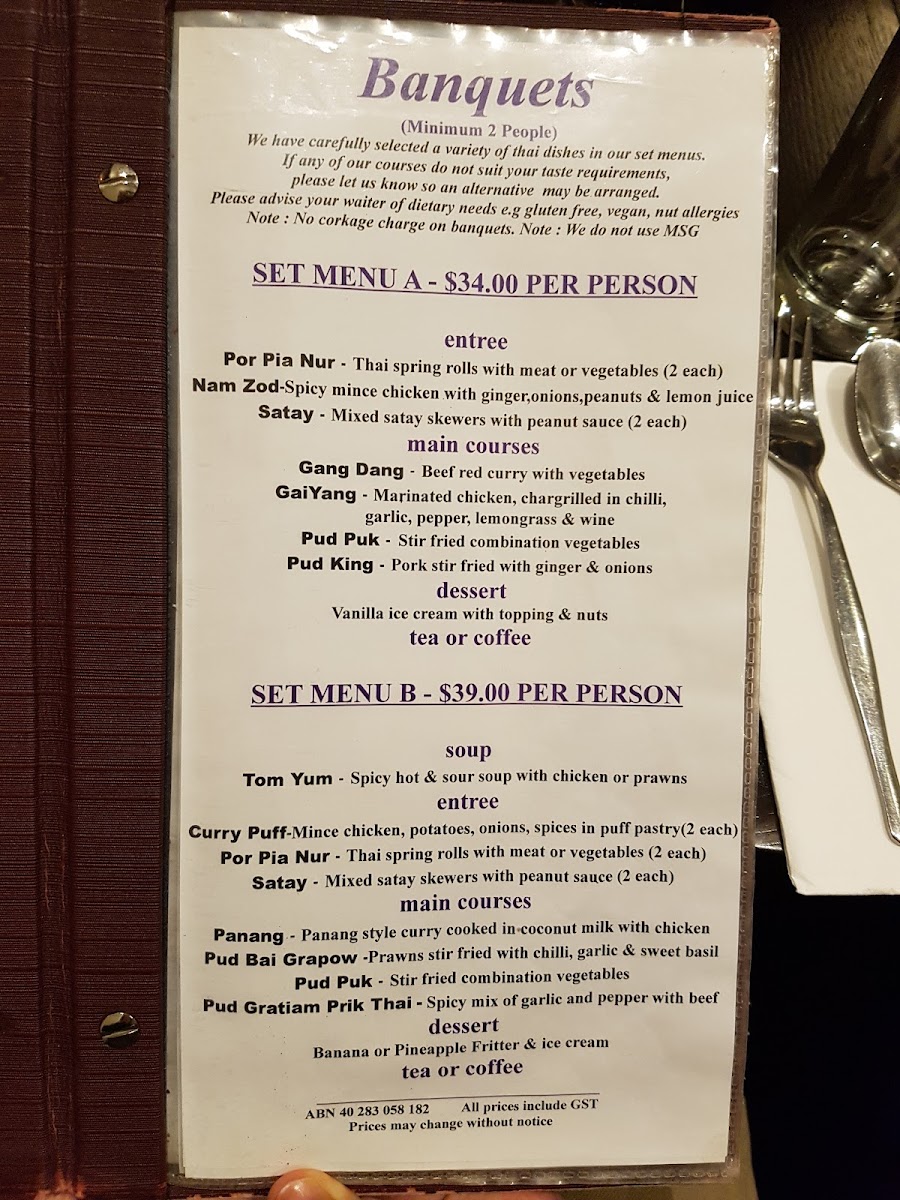 Banquets
(Minimum 2 People)
We have carefully selected a variety of thai dishes in our set menus.
If any of our courses do not suit your taste requirements,
please let us know so an alternative may be arranged.
Please advise your waiter of dietary needs e.g gluten free, vegan, nut allergies
Note : No corkage charge on banquets. Note : We do not use MSG
SET MENU A - $34.00 PER PERSON
entree
Por Pia Nur - Thai spring rolls with meat or vegetables (2 each)
Nam Zod-Spicy mince chicken with ginger,onions,peanuts & lemon juice
Satay - Mixed satay skewers with peanut sauce (2 each)
main courses
Gang Dang - Beef red curry with vegetables
GaiYang - Marinated chicken, chargrilled in chilli,
garlic, pepper, lemongrass & wine
Pud Puk - Stir fried combination vegetables
Pud King - Pork stir fried with ginger & onions
dessert
Vanilla ice cream with topping & nuts
tea or coffee
SET MENU B - $39.00 PER PERSON
soup
Tom Yum - Spicy hot & sour soup with chicken or prawns
entree
Curry Puff-Mince chicken, potatoes, onions, spices in puff pastry(2 each)
Por Pia Nur - Thai spring rolls with meat or vegetables (2 each)
Satay - Mixed satay skewers with peanut sauce (2 each)
main courses
Panang - Panang style curry cooked in coconut milk with chicken
Pud Bai Grapow -Prawns stir fried with chilli, garlic & sweet basil
Pud Puk - Stir fried combination vegetables
Pud Gratiam Prik Thai - Spicy mix of garlic and pepper with beef
dessert
Banana or Pineapple Fritter & ice cream
tea or coffee
ABN 40 283 058 182 All prices include GST
Prices may change without notice